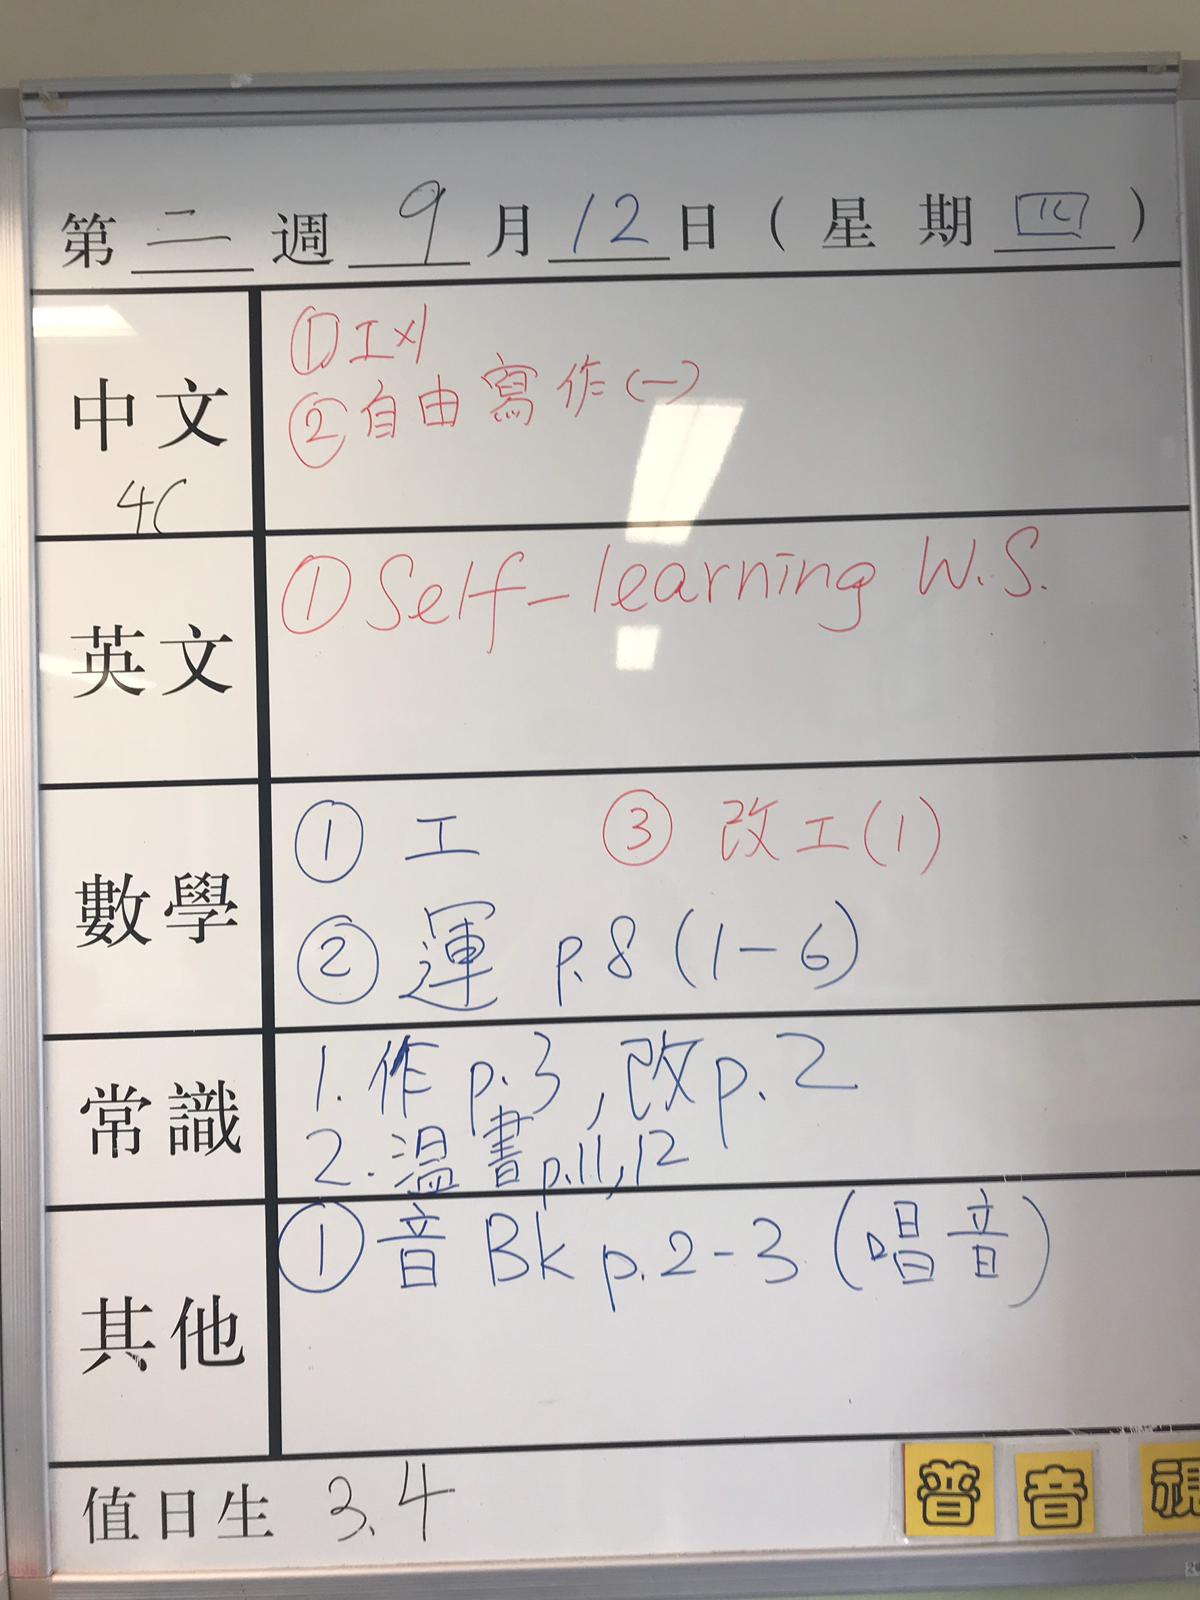 第二週9月12日(星期四)
中文
4C
①工x1
②自由寫作(一)
英文
①Self-learning W.S.
數學
① 工 ③ 改工(1)
② 運 p.8 (1-6)
常識
1.作 p.3,改p.2
2.溫書p.11,12
其他
①音 Bk p.2-3 (唱音)
值日生 3.4
普 音 視